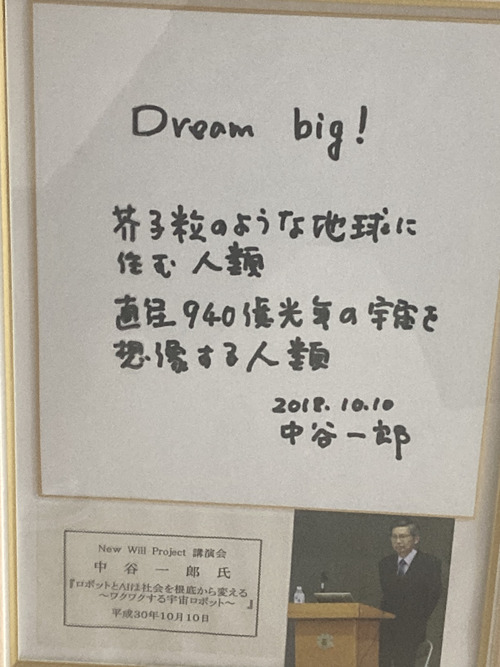 Dream big!
芥子粒のような地球に
住む人類
直径940億光年の宇宙を
想像する人類
2018.10.10
中谷一郎
New Will Project 講演会
中谷一郎氏
『ロボットとAIは社会を根底から変える
～ワクワクする宇宙ロボット～』
平成30年10月10日